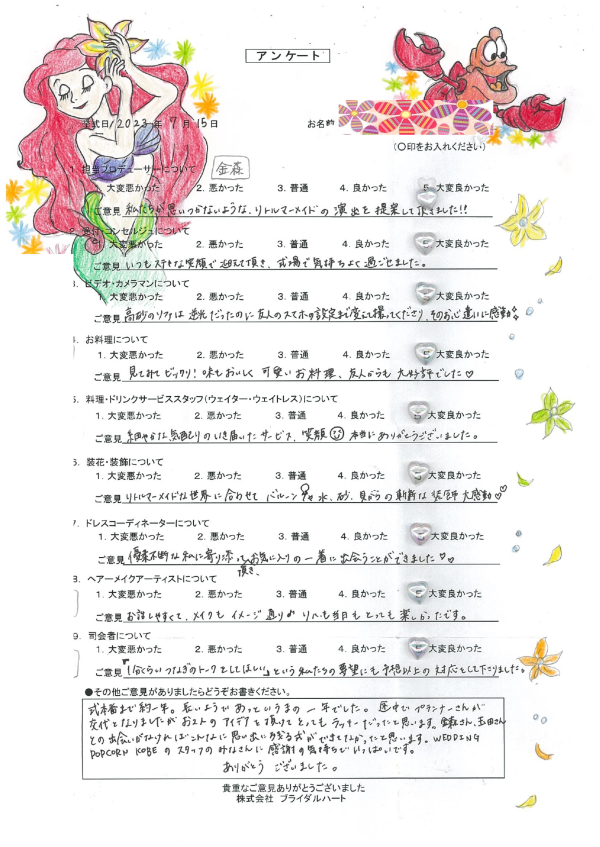 アンケート
挙式日/2023年 7月15日
お名前
(○印をお入れください)
1. 担当プロデューサーについて 金森
1. 大変悪かった 2. 悪かった 3. 普通 4. 良かった 5. 大変良かった
ご意見 私たちが思いつかないような、リトルマーメイドの演出を提案して頂きました!!
2. 受付・コンセルジュについて
1. 大変悪かった 2. 悪かった 3. 普通 4. 良かった 5 大変良かった
ご意見 いつもステキな笑顔で迎えて頂き、式場で気持ちよく過ごせました。
3. ビデオ・カメラマンについて
1. 大変悪かった 2. 悪かった 3. 普通 4. 良かった 5 大変良かった
ご意見 高砂のソファは逆光だったのに友人のスマホの設定まで変えて撮ってくださり、そのお心遣いに感動!
4. お料理について
1. 大変悪かった 2. 悪かった 3. 普通 4. 良かった 5 大変良かった
ご意見 見てみてビックリ!味もおいしく可愛いお料理、友人からも大好評でした♡
5. 料理・ドリンクサービススタッフ(ウェイター・ウェイトレス)について
1. 大変悪かった 2. 悪かった 3. 普通 4. 良かった 5 大変良かった
ご意見 細やかな気配りのいき届いたサービス、笑顔 本当にありがとうございました。
6. 装花・装飾について
1. 大変悪かった 2. 悪かった 3. 普通 4. 良かった 5 大変良かった
ご意見 リトルマーメイドな世界に合わせて バルーン や水、砂、貝がらの斬新な装飾大感動♡
7. ドレスコーディネーターについて
1. 大変悪かった 2. 悪かった 3. 普通 4. 良かった 5 大変良かった
ご意見 優柔不断な私に寄り添って頂き、お気に入りの一着に出会うことができました♡♡
8. ヘアーメイクアーティストについて
1. 大変悪かった 2. 悪かった 3. 普通 4. 良かった 5 大変良かった
ご意見 お話しやすくて、メイクもイメージ通り リハも当日もとっても楽しかったです。
9. 司会者について
1. 大変悪かった 2. 悪かった 3. 普通 4. 良かった 5 大変良かった
ご意見 「1分くらいつなぎのトークをしてほしい」という私たちの要望にも予想以上の対応をして下さりました。
●その他ご意見がありましたらどうぞお書きください。
式本番まで約一年。長いようであっというまの一年でした。途中でプランナーさんが
交代となりましたがお二人のアイデアを頂けてとってもラッキーだったと思います。金森さん、玉田さん
との出会いがなければこんなに思い出にのこる式ができてなかったと思います。WEDDING
POPCORN KOBEのスタッフのみなさんに感謝の気持ちでいっぱいです。
ありがとうございました。
貴重なご意見ありがとうございました
株式会社 ブライダルハート